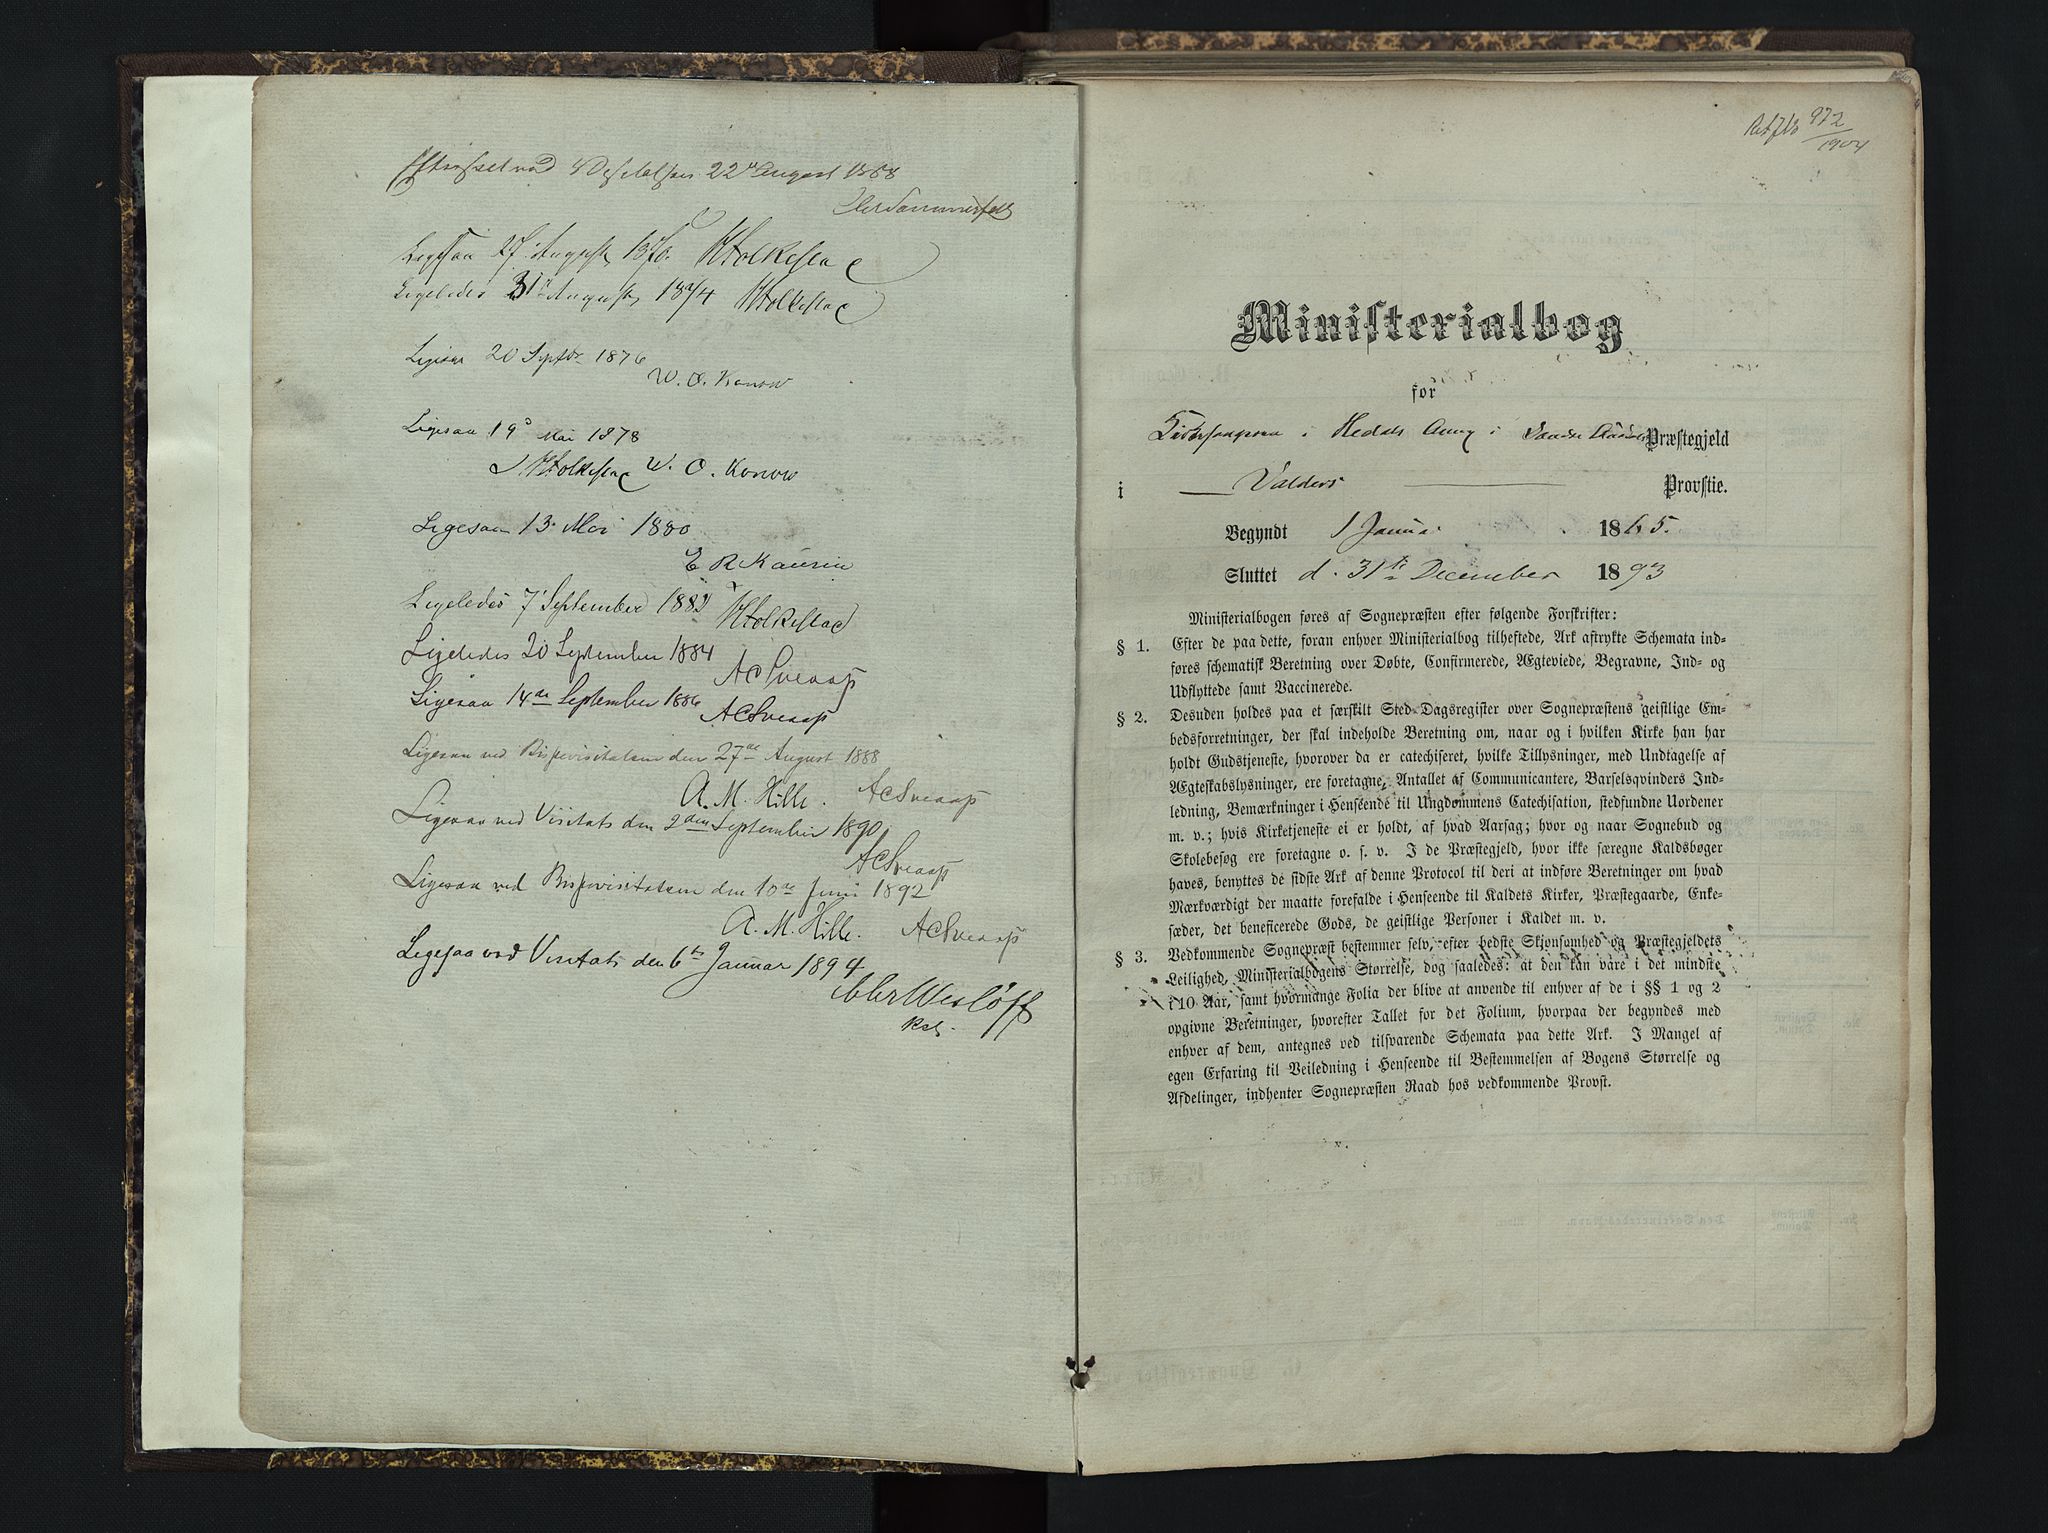 22de August 1868
Ligesaa 27. August 1870. HHolkestad
Ligeledes 31te August 1874 HHolkestad
Ligesaa 20 Septbr 1876
W. O. Konow
Ligesaa 19d Mai 1878
HHolkestad W. O. Konow
Ligesaa 13. Mai 1880
E R Kaurin
Ligeledes 7' September 1882 HHolkestad
Ligeledes 20 September 1884
ACSveaap
Ligesaa 14de September 1886
ACSveaap
Ligesaa ved Bispevisitatsen den 27de August 1888
A. M. Hille. ACSveaap
Ligesaa ved Visitats den 2den September 1890
ACSveaap
Ligesaa ved Bispevisitatsen den 10de Juni 1892
A. M. Hille. ACSveaap
Ligesaa ved Visitats den 6te Januar 1894
972
1904
Ministerialbog
for
i Hedals Annex i Søndre Aurdals Præstegjeld
i Valders Provstie.
Begyndt 1 Januar 1865.
Sluttet d. 31te December 1893
Ministerialbogen føres af Sognepræsten efter følgende Forskrifter:
§ 1. Efter de paa dette, foran enhver Ministerialbog tilheftede, Ark aftrykte Schemata ind-
føres schematisk Beretning over Døbte, Confirmerede, Ægteviede, Begravne, Ind- og
Udflyttede samt Vaccinerede.
§ 2. Desuden holdes paa et særskilt Sted Dagsregister over Sognepræstens geistlige Em-
bedsforretninger, der skal indeholde Beretning om, naar og i hvilken Kirke han har
holdt Gudstjeneste, hvorover da er catechiseret, hvilke Tillysninger, med Undtagelse af
Ægteskabslysninger, ere foretagne, Antallet af Communicantere, Barselqvinders Ind-
ledning, Bemærkninger i Henseende til Ungdommens Catechisation, stedfundne Uordener
m. v.; hvis Kirketjeneste ei er holdt, af hvad Aarsag; hvor og naar Sognebud og
Skolebesøg ere foretagne o. s. v. I de Præstegjeld, hvor ikke særegne Kaldsbøger
haves, benyttes de sidste Ark af denne Protocol til deri at indføre Beretninger om hvad
Mærkværdigt der maatte forefalde i Henseende til Kaldets Kirker, Præstegaarde, Enke-
sæder, det beneficerede Gods, de geistlige Personer i Kaldet m. v.
§ 3. Vedkommende Sognepræst bestemmer selv, efter bedste Skjønsamhed og Præstegjeldets
Leilighed, Ministerialbogens Størrelse, dog saaledes: at den kan vare i det mindste
i 10 Aar, samt hvormange Folia der blive at anvende til enhver af de i §§ 1 og 2
opgivne Beretninger, hvorefter Tallet for det Folium, hvorpaa der begyndes med
enhver af dem, antegnes ved tilsvarende Schemata paa dette Ark. I Mangel af
egen Erfaring til Veiledning i Henseende til Bestemmelsen af Bogens Størrelse og
Afdelinger, indhenter Sognepræsten Raad hos vedkommende Provst.